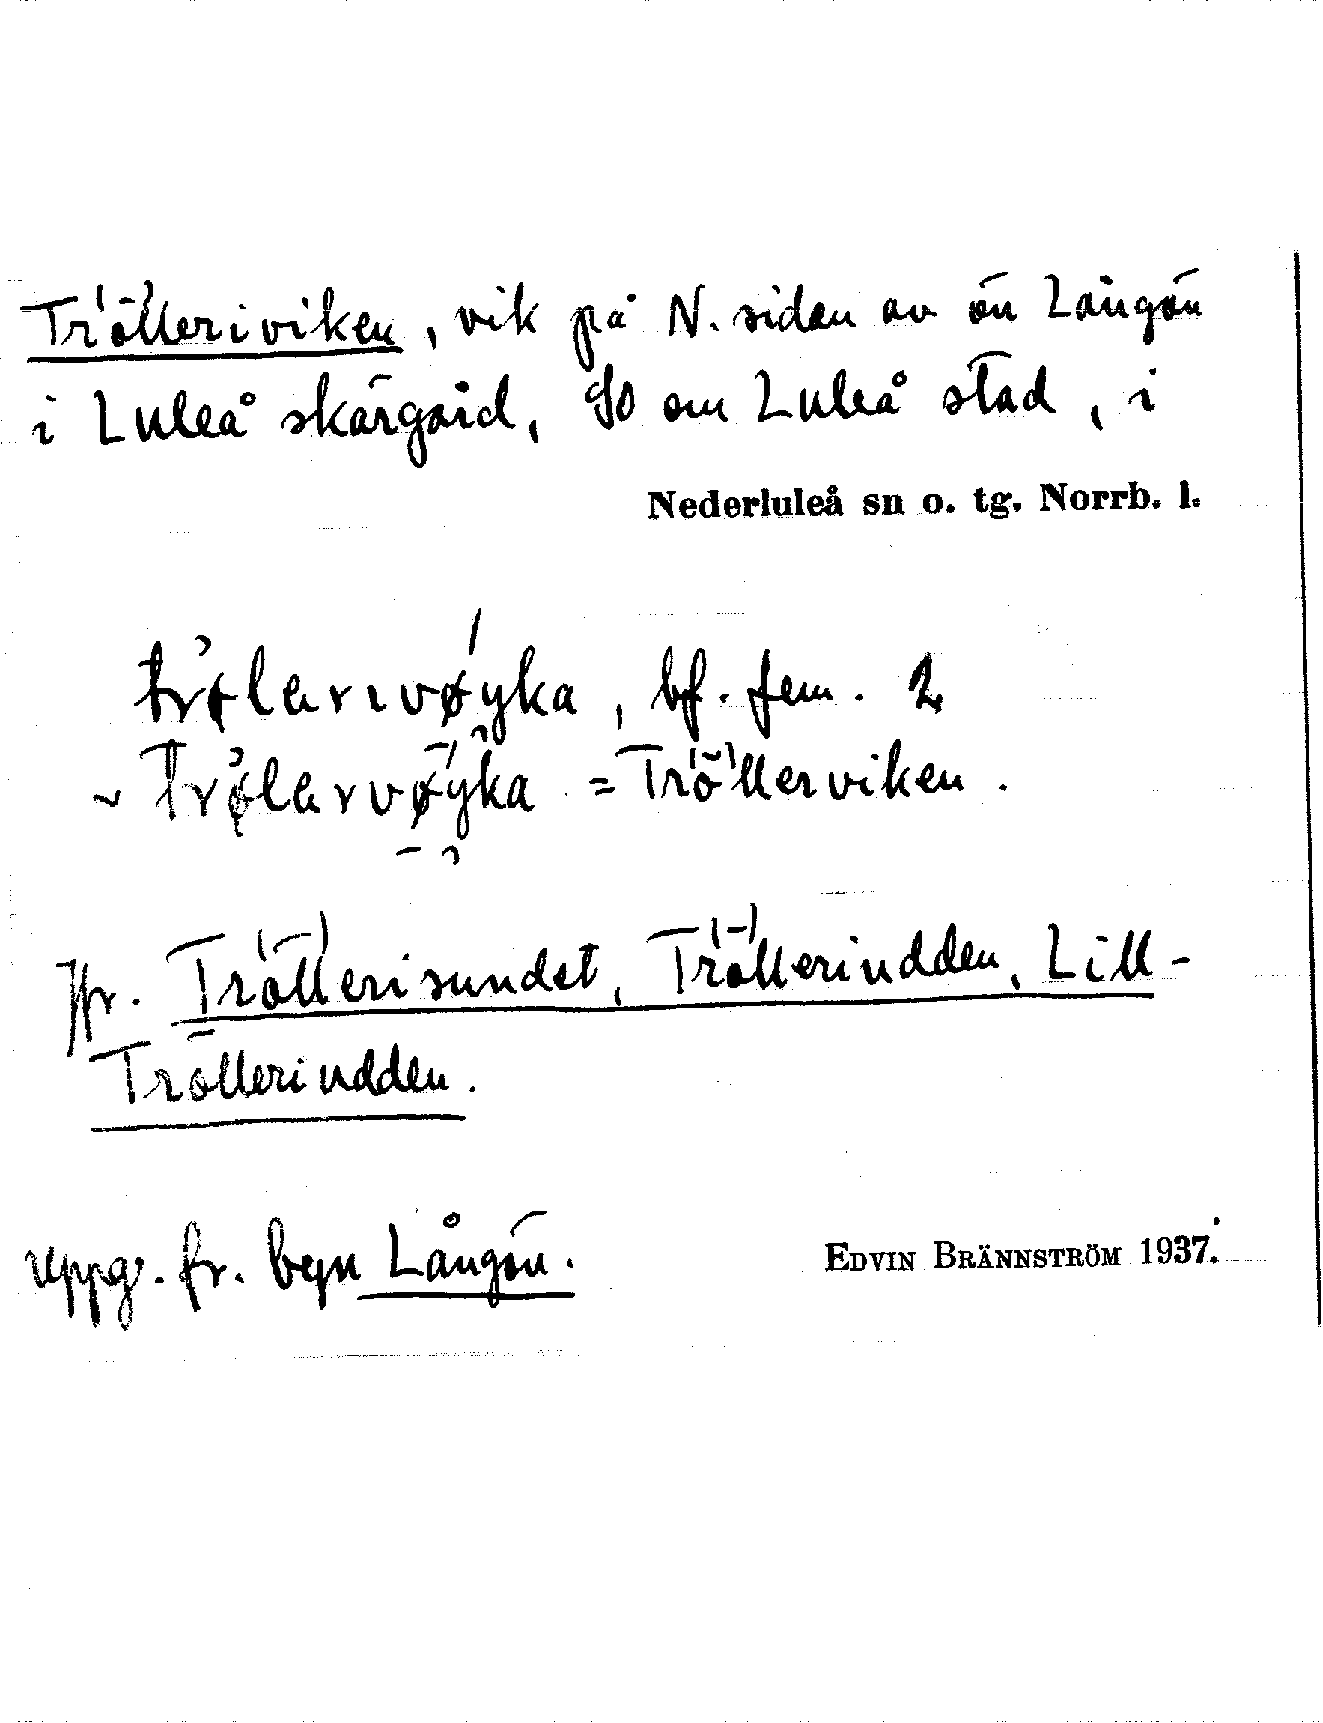 Trölleriviken, vik på N. sidan av ön Långön
i Luleå skärgård, SO om Luleå stad, i
Nederluleå sn o. tg. Norrb. l.
trølarıvøyka, bf. fem. 2
~ trølarvøyka = Tröllerviken.
Jfr. Tröllerisundet, Trölleriudden, Lill-
Trölleriudden.
uppg. fr. byn Långön.
EDVIN BRÄNNSTRÖM 1937.